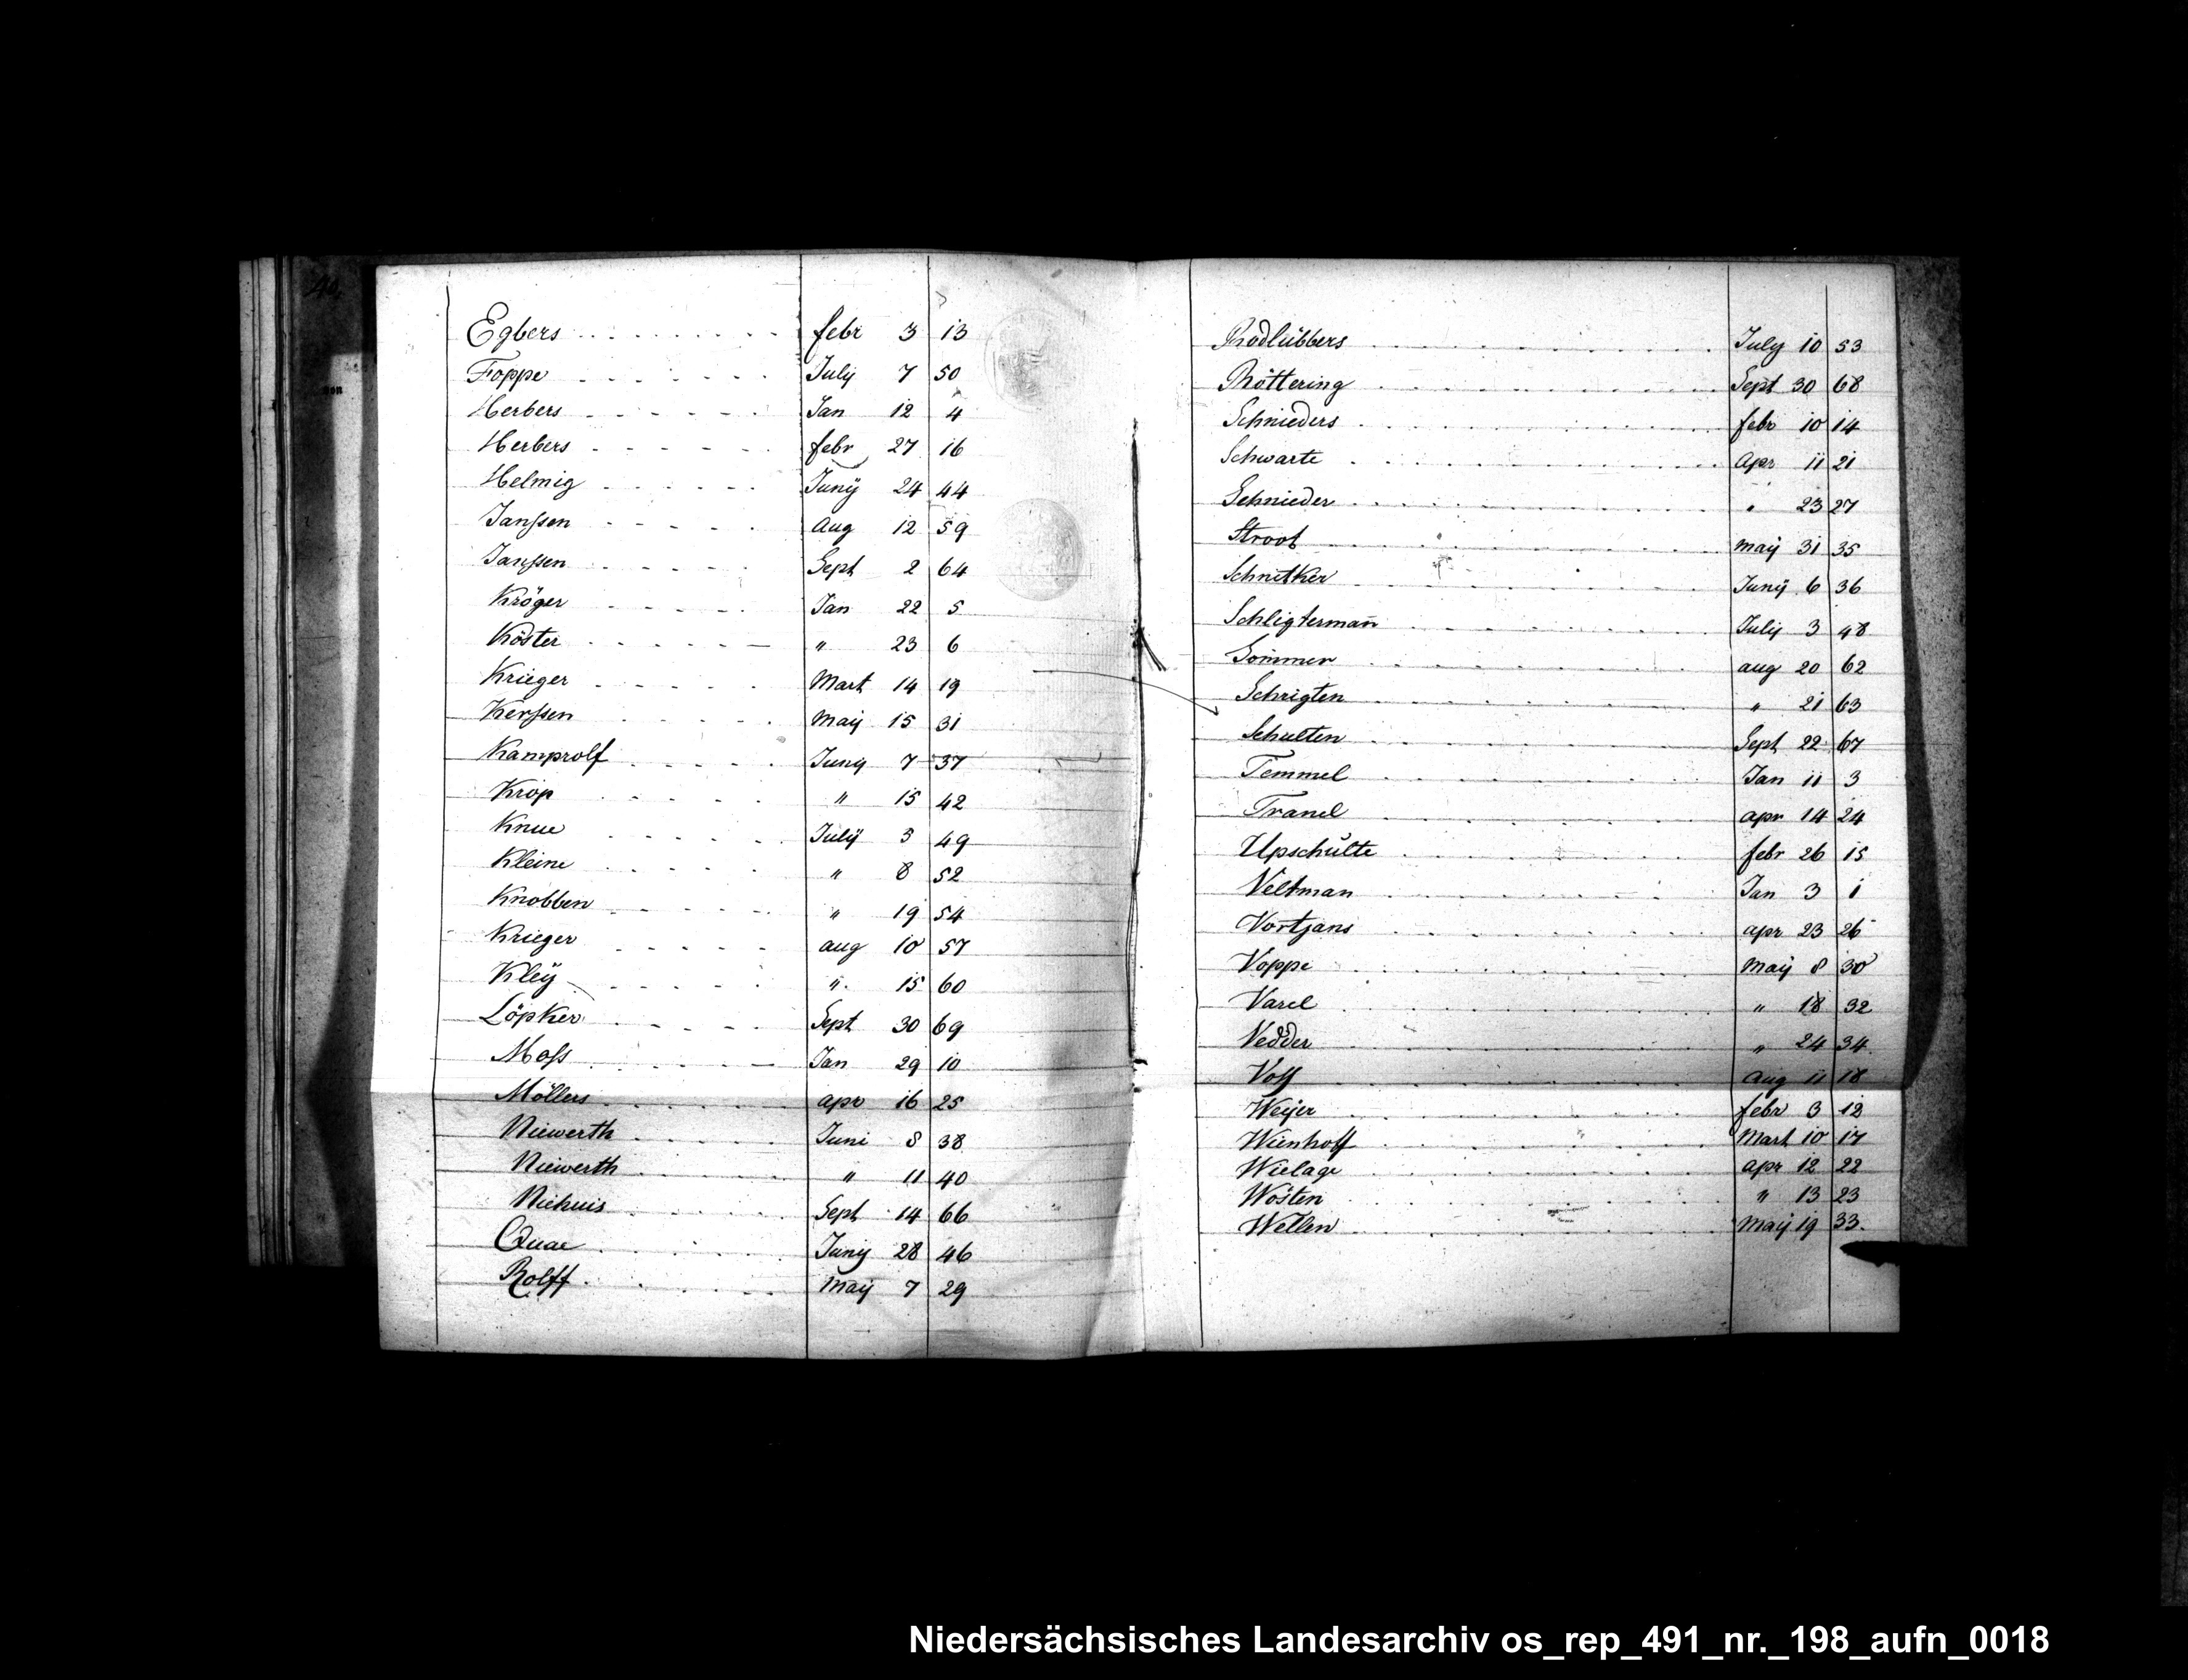 Egbers febr 3 13
Foppe July 7 50
Herbers Jan 12 4
Herbers febr 27 16
Helmig Junÿ 24 44
Janssen Aug 12 59
Janssen Sept 2 64
Kröger Jan 22 5
Köster " 23 6
Krieger Mart 14 19
Kerssen Maÿ 15 31
Kamprolf Junÿ 7 37
Krop " 15 42
Knue Julÿ 3 49
Kleine " 8 52
Knobben " 19 54
Krieger aug 10 57
Kleÿ " 15 60
Löpker Sept 30 69
Moss Jan 29 10
Möllers apr 16 25
Niewerth Juni 8 38
Niewerth " 11 40
Niehuis Sept 14 66
Quae Junÿ 28 46
Rolff Maÿ 7 29
Rodlübbers July 10 53
Röttering Sept 30 68
Schnieders febr 10 14
Schwarte Apr 11 21
Schnieder " 23 27
Stroot Maÿ 31 35
Schnitker Junÿ 6 36
Schligterman̄ Julÿ 3 48
Sommer aug 20 62
Schrigten " 21 63
Schulten Sept 22 67
Temmel Jan 11 3
Tranel apr 14 24
Upschulte febr 26 15
Veltman Jan 3 1
Vortjans apr 23 26
Voppe Maÿ 8 30
Varel " 18 32
Vedder " 24 34
Voss Aug 11 18
Weÿer febr 3 12
Wienhoff Mart 10 17
Wielage apr 12 22
Wösten " 13 23
Wellen Maÿ 19 33.
Niedersächsisches Landesarchiv os_rep_491_nr._198_aufn_0018